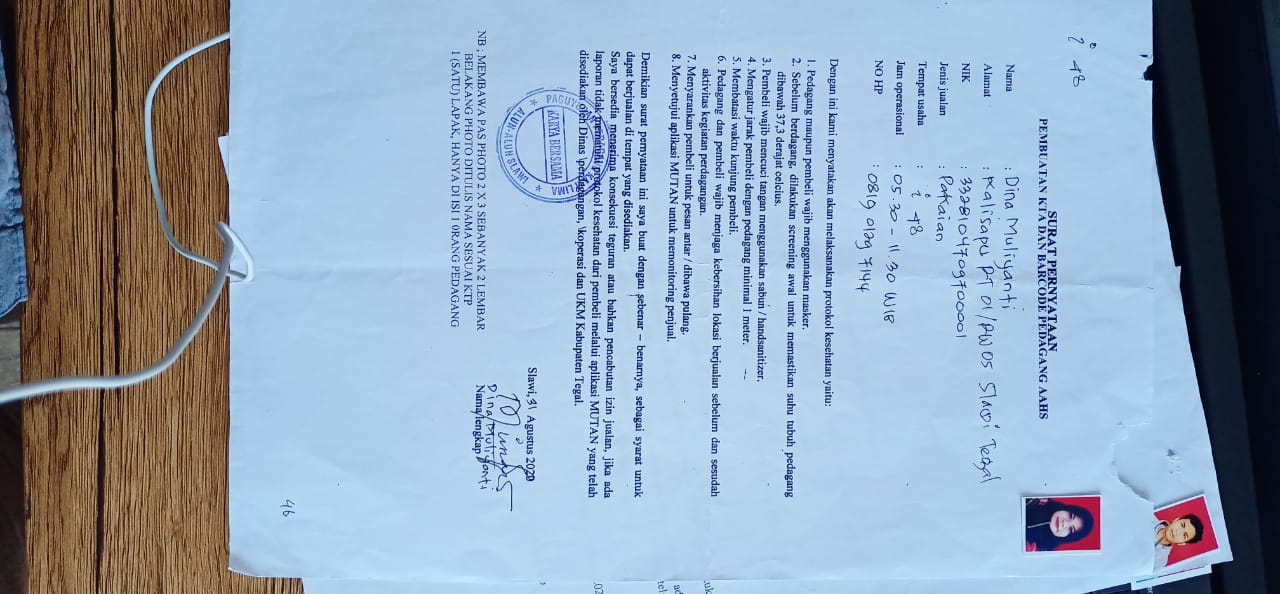 i 48
SURAT PERNYATAAN
PEMBUATAN KTA DAN BARCODE PEDAGANG AAHS
Nama : Dina Muliyanti
Alamat : Kalisapu RT 01/RW 05 Slawi Tegal
NIK : 3328104709700001
Jenis jualan : Pakaian
Tempat usaha : i 48
Jam operasional : 05.30 - 11.30 WIB
NO HP : 0819 0129 7144
Dengan ini kami menyatakan akan melaksanakan protokol kesehatan yaitu:
1. Pedagang maupun pembeli wajib menggunakan masker.
2. Sebelum berdagang, dilakukan screening awal untuk memastikan suhu tubuh pedagang
dibawah 37,3 derajat celcius.
3. Pembeli wajib mencuci tangan menggunakan sabun / handsanitizer.
4. Mengatur jarak pembeli dengan pedagang minimal 1 meter.
5. Membatasi waktu kunjung pembeli.
6. Pedagang dan pembeli wajib menjaga kebersihan lokasi berjualan sebelum dan sesudah
aktivitas kegiatan perdagangan.
7. Menyarankan pembeli untuk pesan antar / dibawa pulang.
8. Menyetujui aplikasi MUTAN untuk memonitoring penjual.
Demikian surat pernyataan ini saya buat dengan sebenar – benarnya, sebagai syarat untuk
dapat berjualan di tempat yang disediakan.
Saya bersedia menerima konsekuesi teguran atau bahkan pencabutan izin jualan, jika ada
laporan tidak mematuhi protokol kesehatan dari pembeli melalui aplikasi MUTAN yang telah
disediakan oleh Dinas \perdagangan, \koperasi dan UKM Kabupaten Tegal.
KARYA BERSAMA
ALUN-ALUN SLAWI
Slawi,31 Agustus 2020
Dina Muliyanti
Nama lengkap
NB ; MEMBAWA PAS PHOTO 2 X 3 SEBANYAK 2 LEMBAR
BELAKANG PHOTO DITULIS NAMA SESUAI KTP
1 (SATU) LAPAK, HANYA DI ISI 1 0RANG PEDAGANG
46